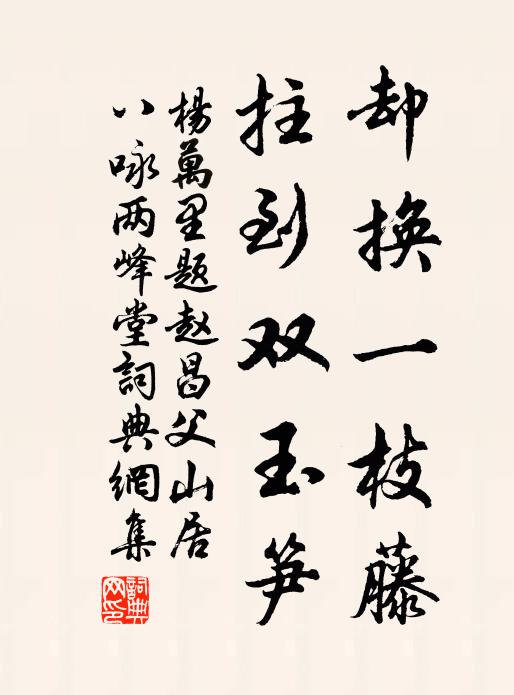 却换一枝藤
拄到双玉笋
楊萬里题赵昌父山居
八咏两峰堂詞典網集
詞典网印